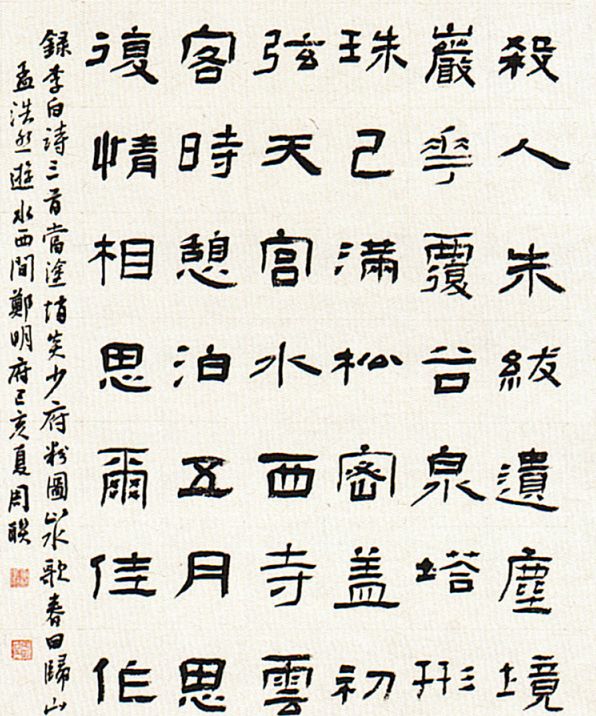 殺人朱紱遺塵境
巖華覆谷泉塔形
珠已滿松密蓋初
弦天宮水西寺雲
客時憩泊五月思
復情相思爾佳作
錄李白詩三首當塗趙炎少府粉圖山水歌春日歸山
孟浩然遊水西間鄭明府己亥夏周聯